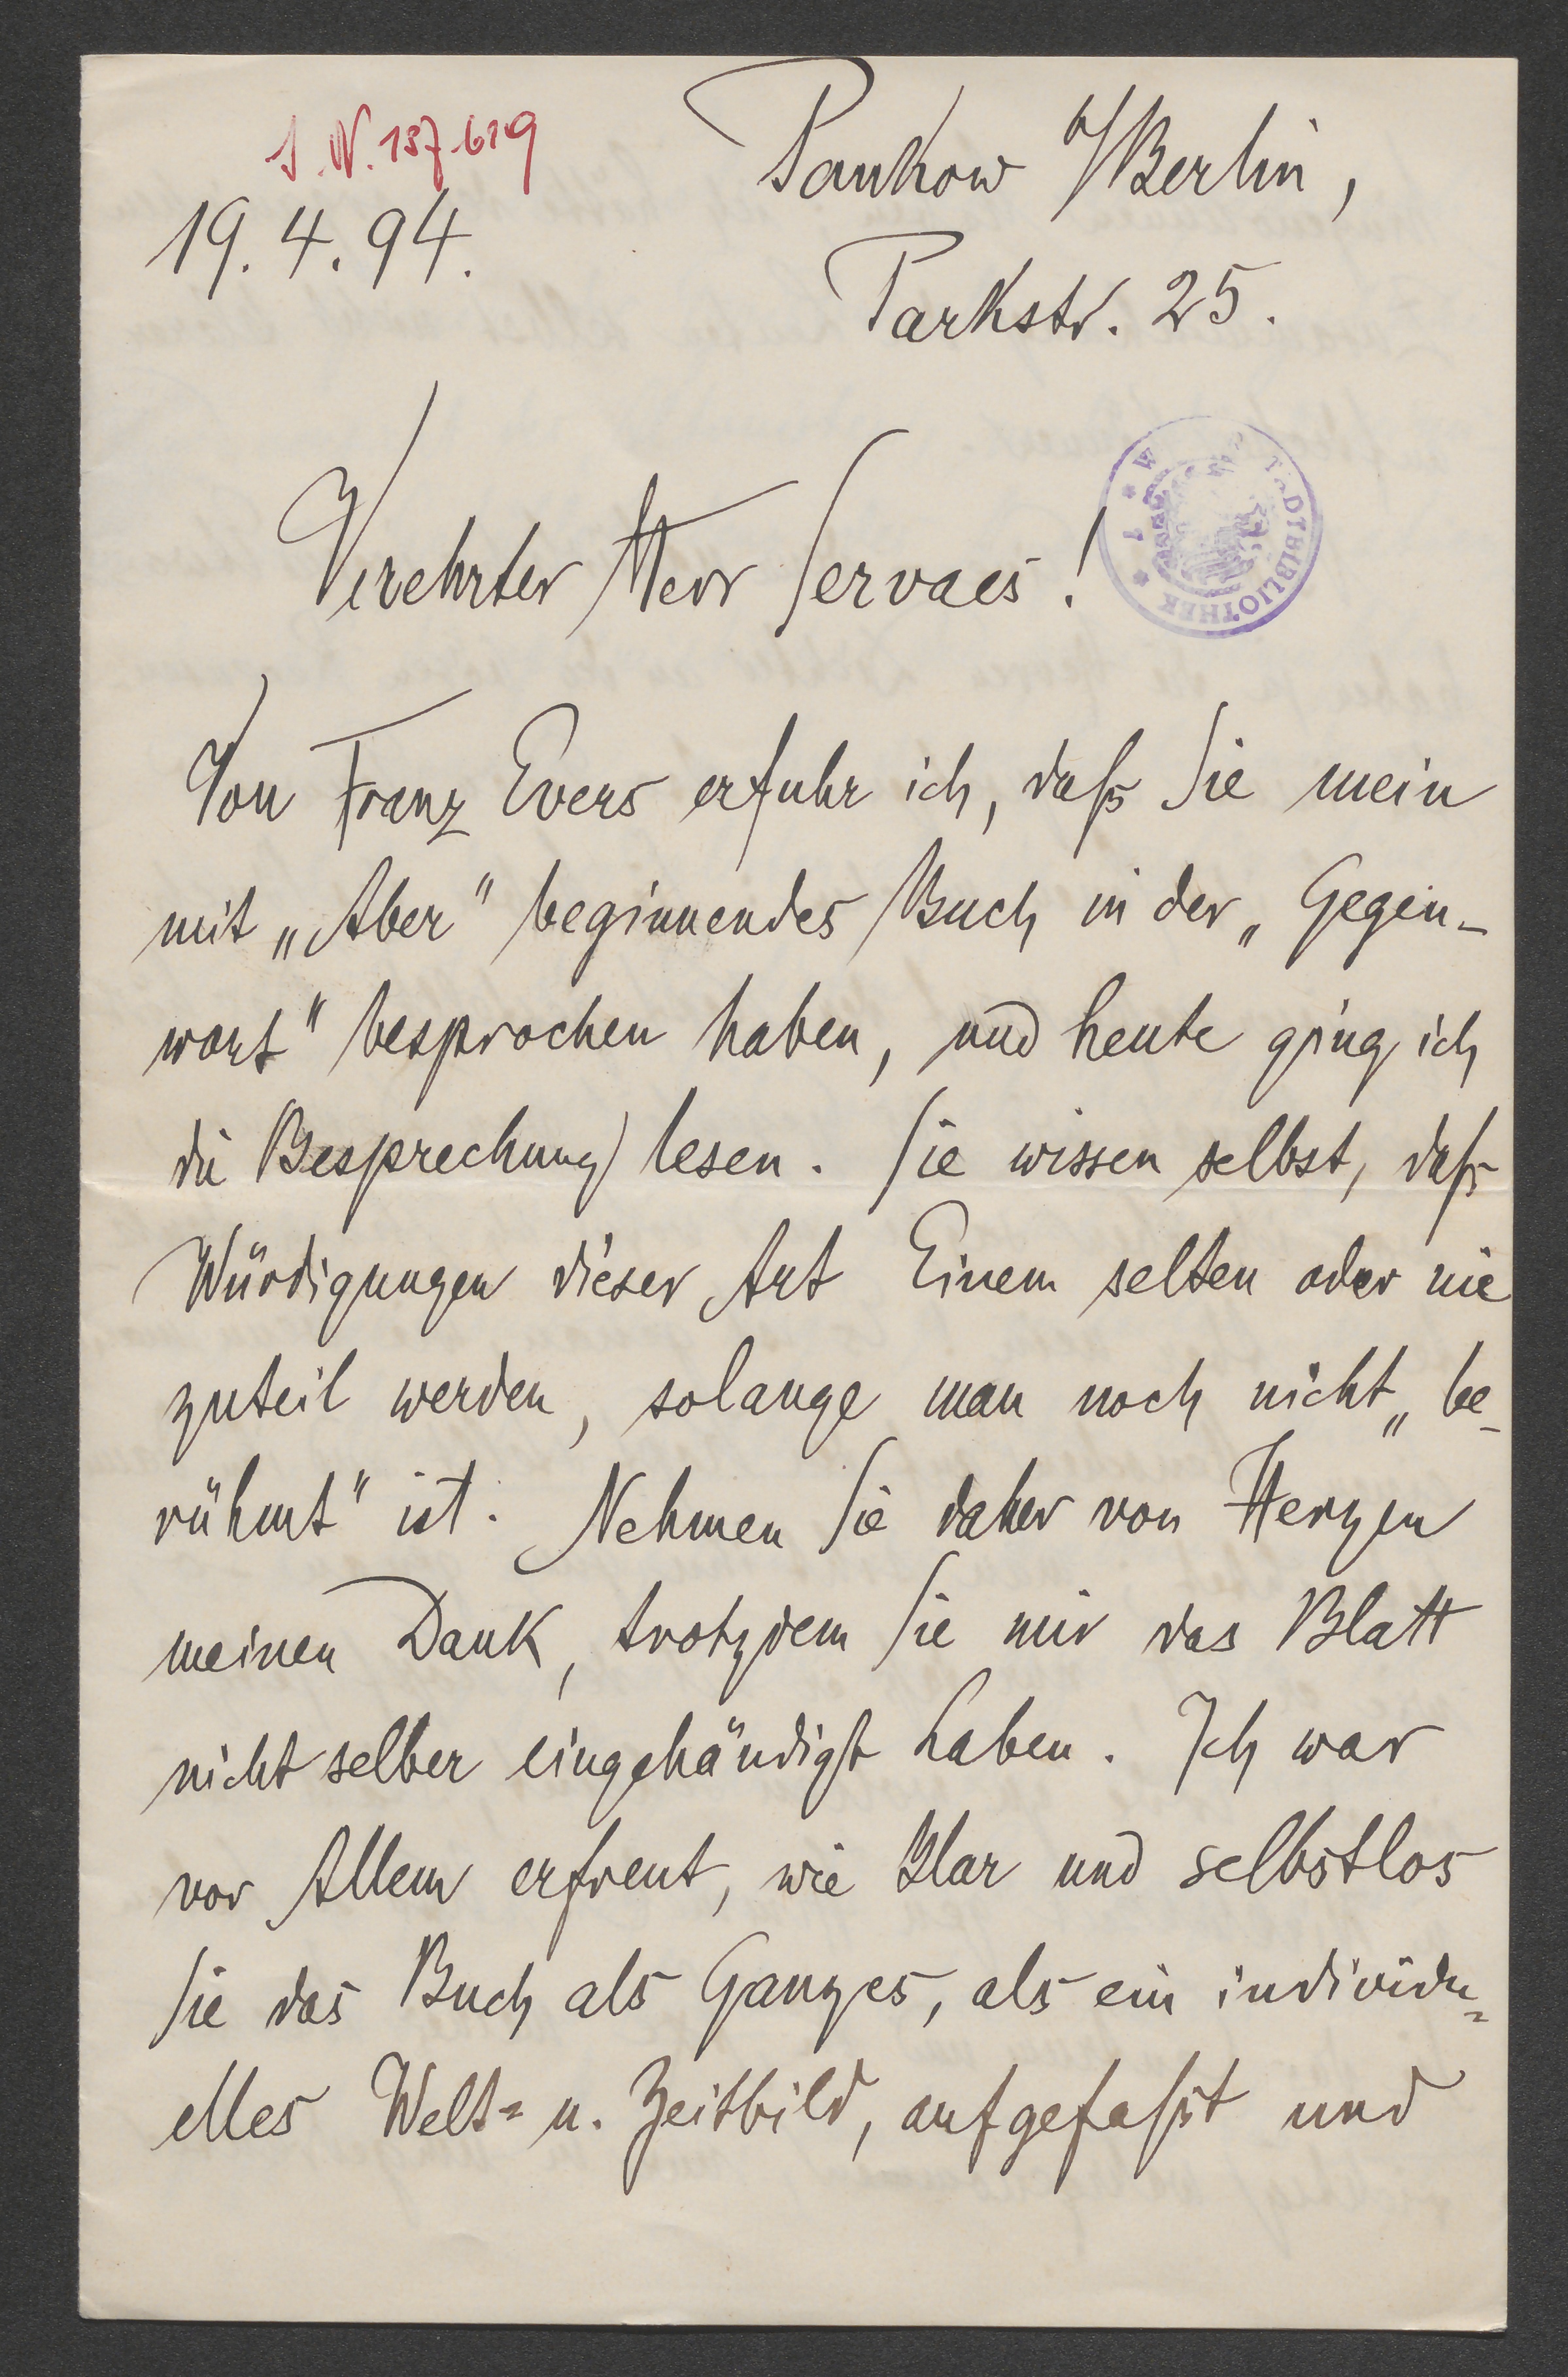 J.N. 137.619
Pankow b/Berlin,
19. 4. 94.
Parkstr. 25.
Verehrter Herr Servaes!
Von Franz Evers erfuhr ich, daß Sie mein
mit „Aber" beginnendes Buch in der „Gegen-
wart" besprochen haben, und heute ging ich
die Besprechung lesen. Sie wissen selbst, daß
Würdigungen dieser Art Einem selten oder nie
zuteil werden, solange man noch nicht „be-
rühmt" ist. Nehmen Sie daher von Herzen
meinen Dank, trotzdem Sie mir das Blatt
nicht selber eingehändigt haben. Ich war
vor Allem erfreut, wie klar und selbstlos
Sie das Buch als Ganzes, als ein individu=
elles Welt= u. Zeitbild, aufgefaßt und